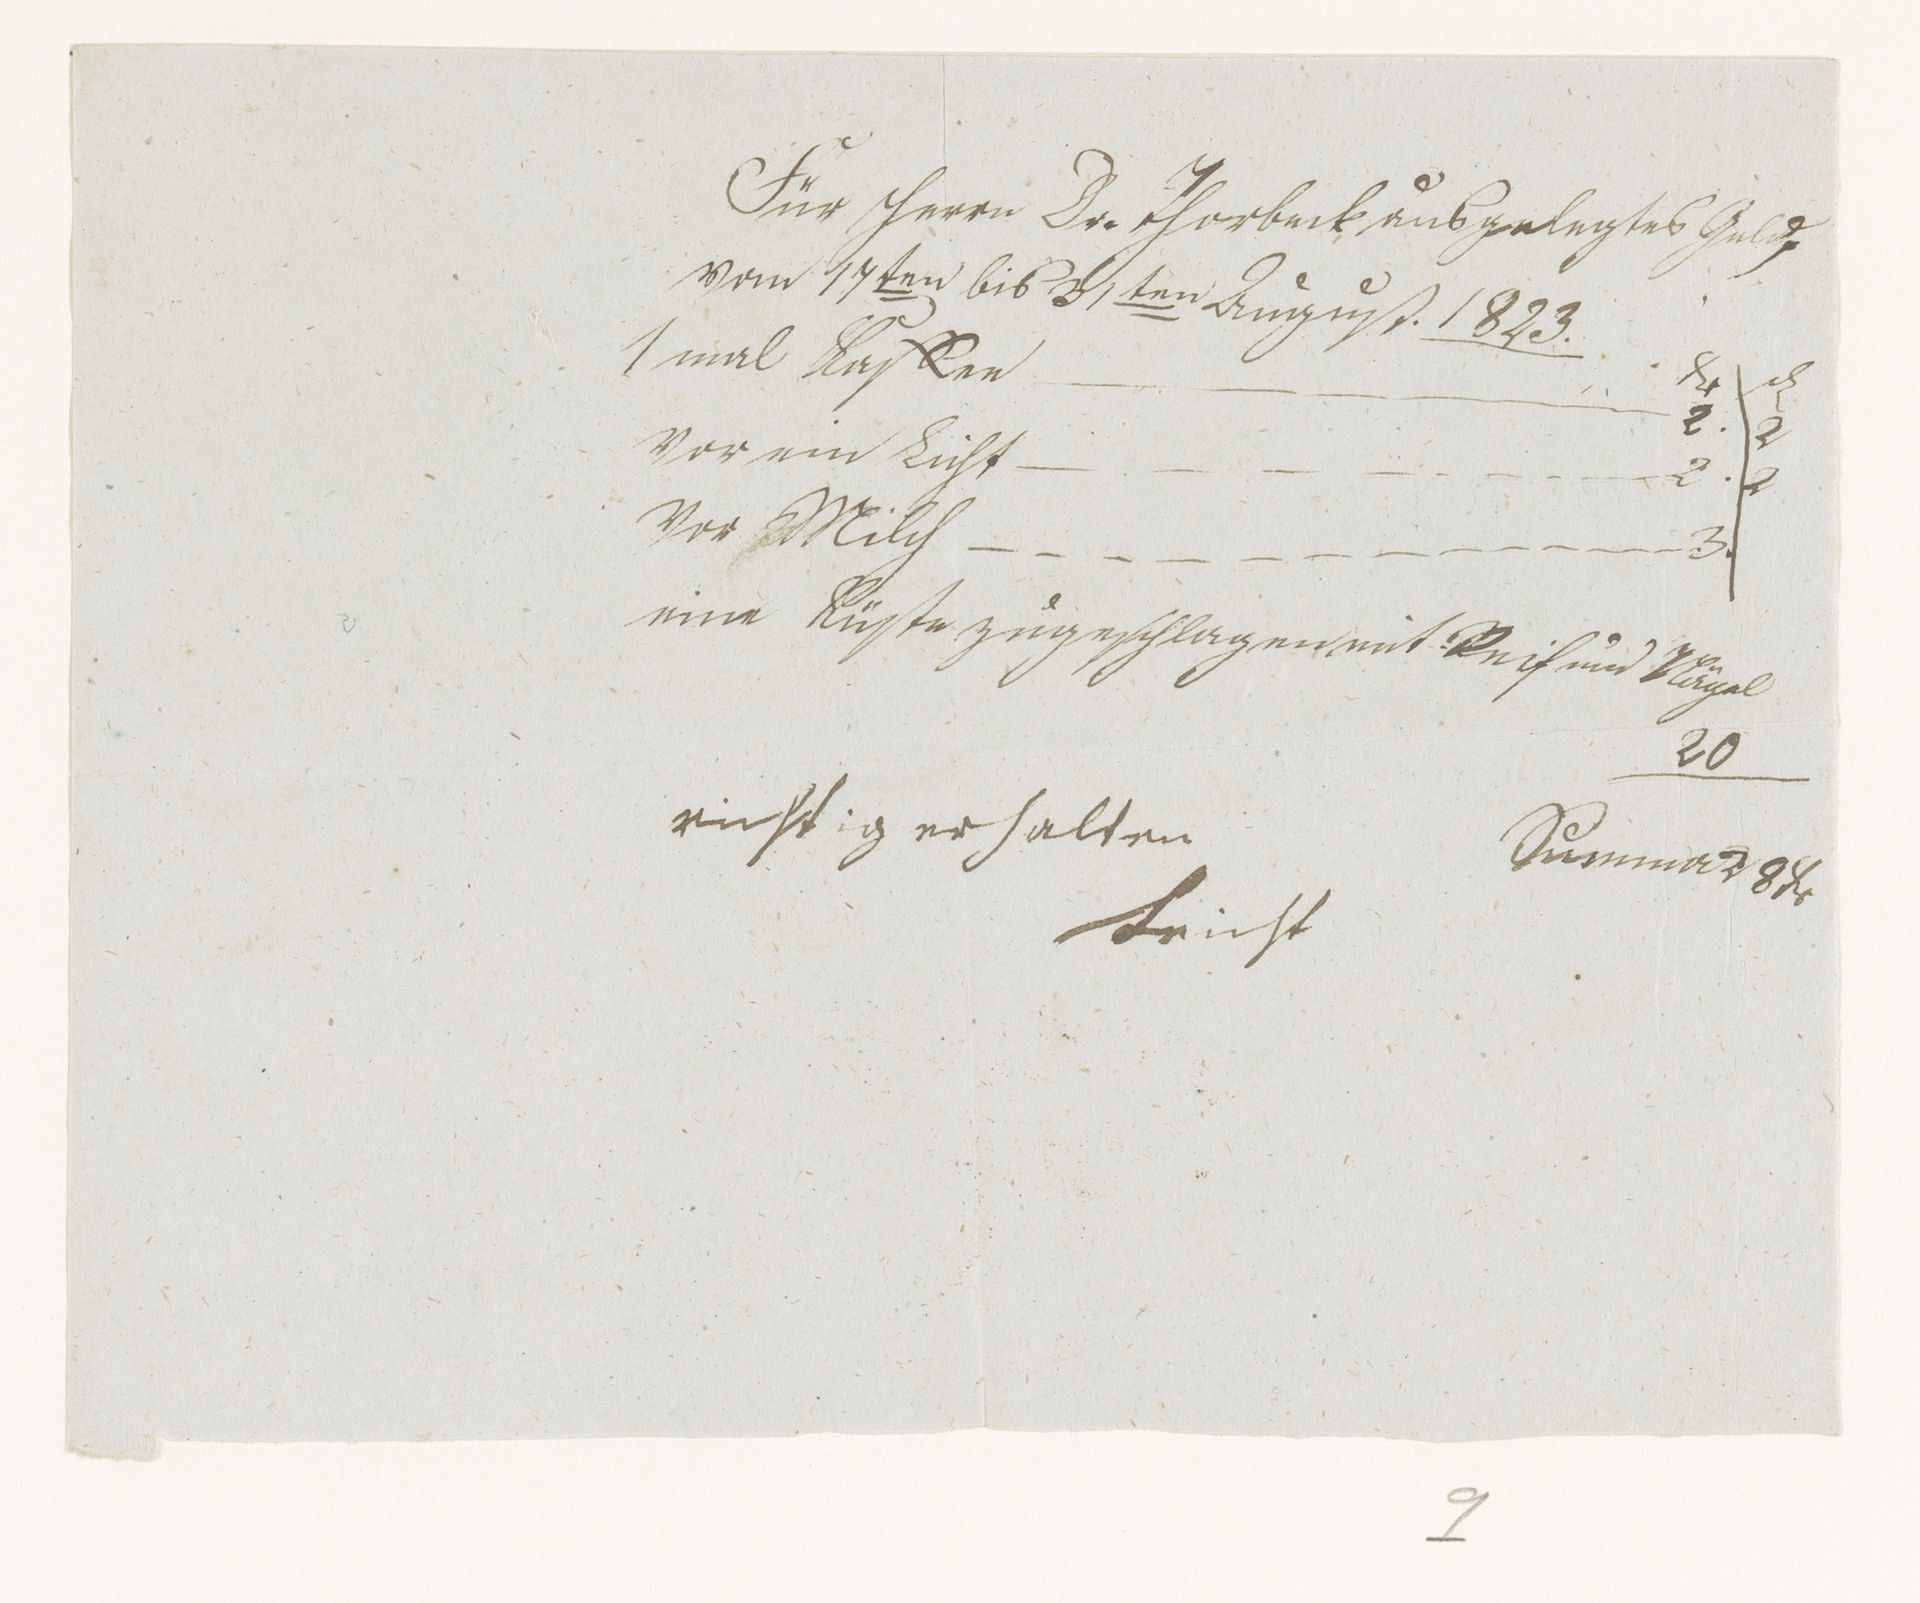 Für Herrn Dr. Thorbeck ausgelegtes Geld,
vom 17ten bis 31ten August. 1823.
Kr | d
1 mal Kaffee 2. | 2
vor ein Licht 2. | 2
vor Milch 3.
eine Küste zugeschlagen mit Reif und Nägel
20
Summa 28 Kr
richtig erhalten
9